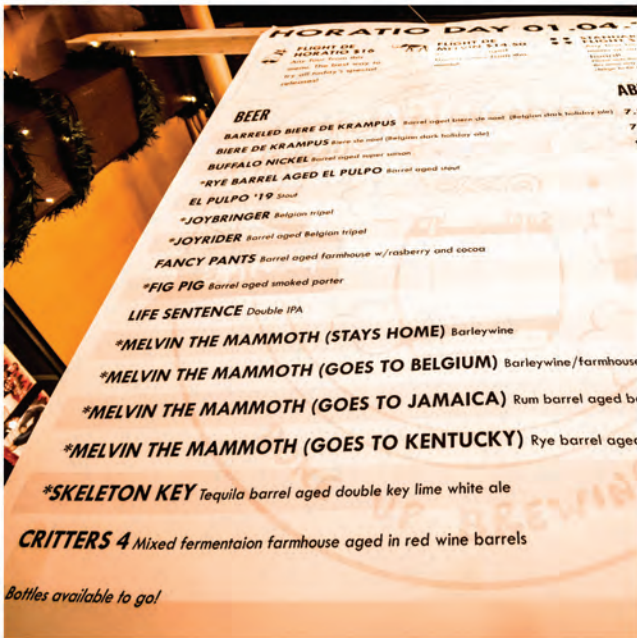 HORATIO DAY 01.04.
FLIGHT DE
HORATIO $16
Any four from this
menu. The best way to
try all today's special
releases!
FLIGHT DE
MELVIN $14.50
AB
BEER
BARRELED BIERE DE KRAMPUS Barrel aged biere de noel (Belgian dark holiday ale) 7.
BIERE DE KRAMPUS Biere de noel (Belgian dark holiday ale) 7
BUFFALO NICKEL Barrel aged super saison
*RYE BARREL AGED EL PULPO Barrel aged stout
EL PULPO '19 Stout
*JOYBRINGER Belgian tripel
*JOYRIDER Barrel aged Belgian tripel
FANCY PANTS Barrel aged farmhouse w/rasberry and cocoa
*FIG PIG Barrel aged smoked porter
LIFE SENTENCE Double IPA
*MELVIN THE MAMMOTH (STAYS HOME) Barleywine
*MELVIN THE MAMMOTH (GOES TO BELGIUM) Barleywine/farmhouse
*MELVIN THE MAMMOTH (GOES TO JAMAICA) Rum barrel aged b
*MELVIN THE MAMMOTH (GOES TO KENTUCKY) Rye barrel aged
*SKELETON KEY Tequila barrel aged double key lime white ale
CRITTERS 4 Mixed fermentaion farmhouse aged in red wine barrels
Bottles available to go!